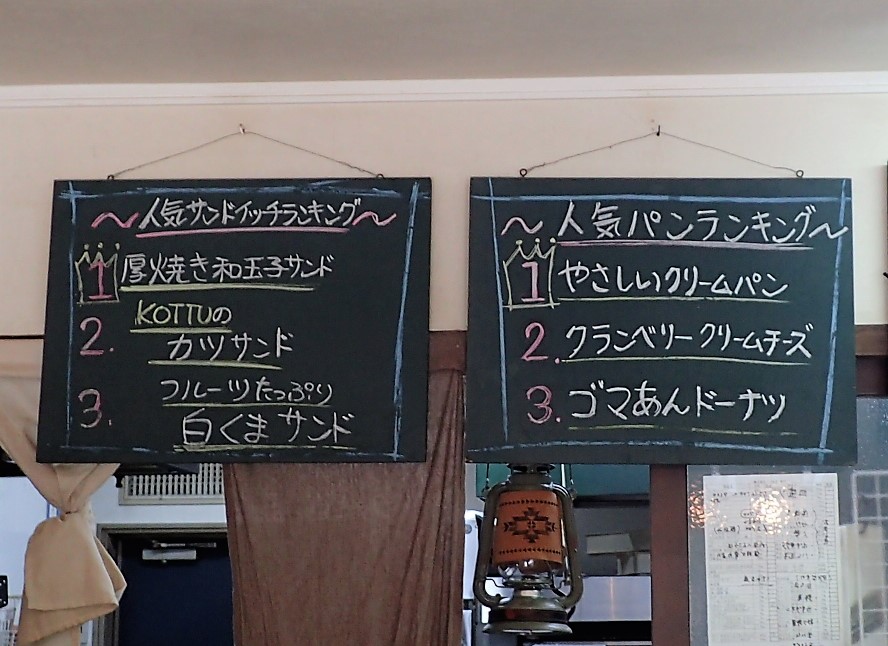 ～人気サンドイッチランキング～
1 厚焼き和玉子サンド
2. KOTTUの
カツサンド
3. フルーツたっぷり
白くまサンド
～人気パンランキング～
1 やさしいクリームパン
2. クランベリークリームチーズ
3. ゴマあんドーナツ